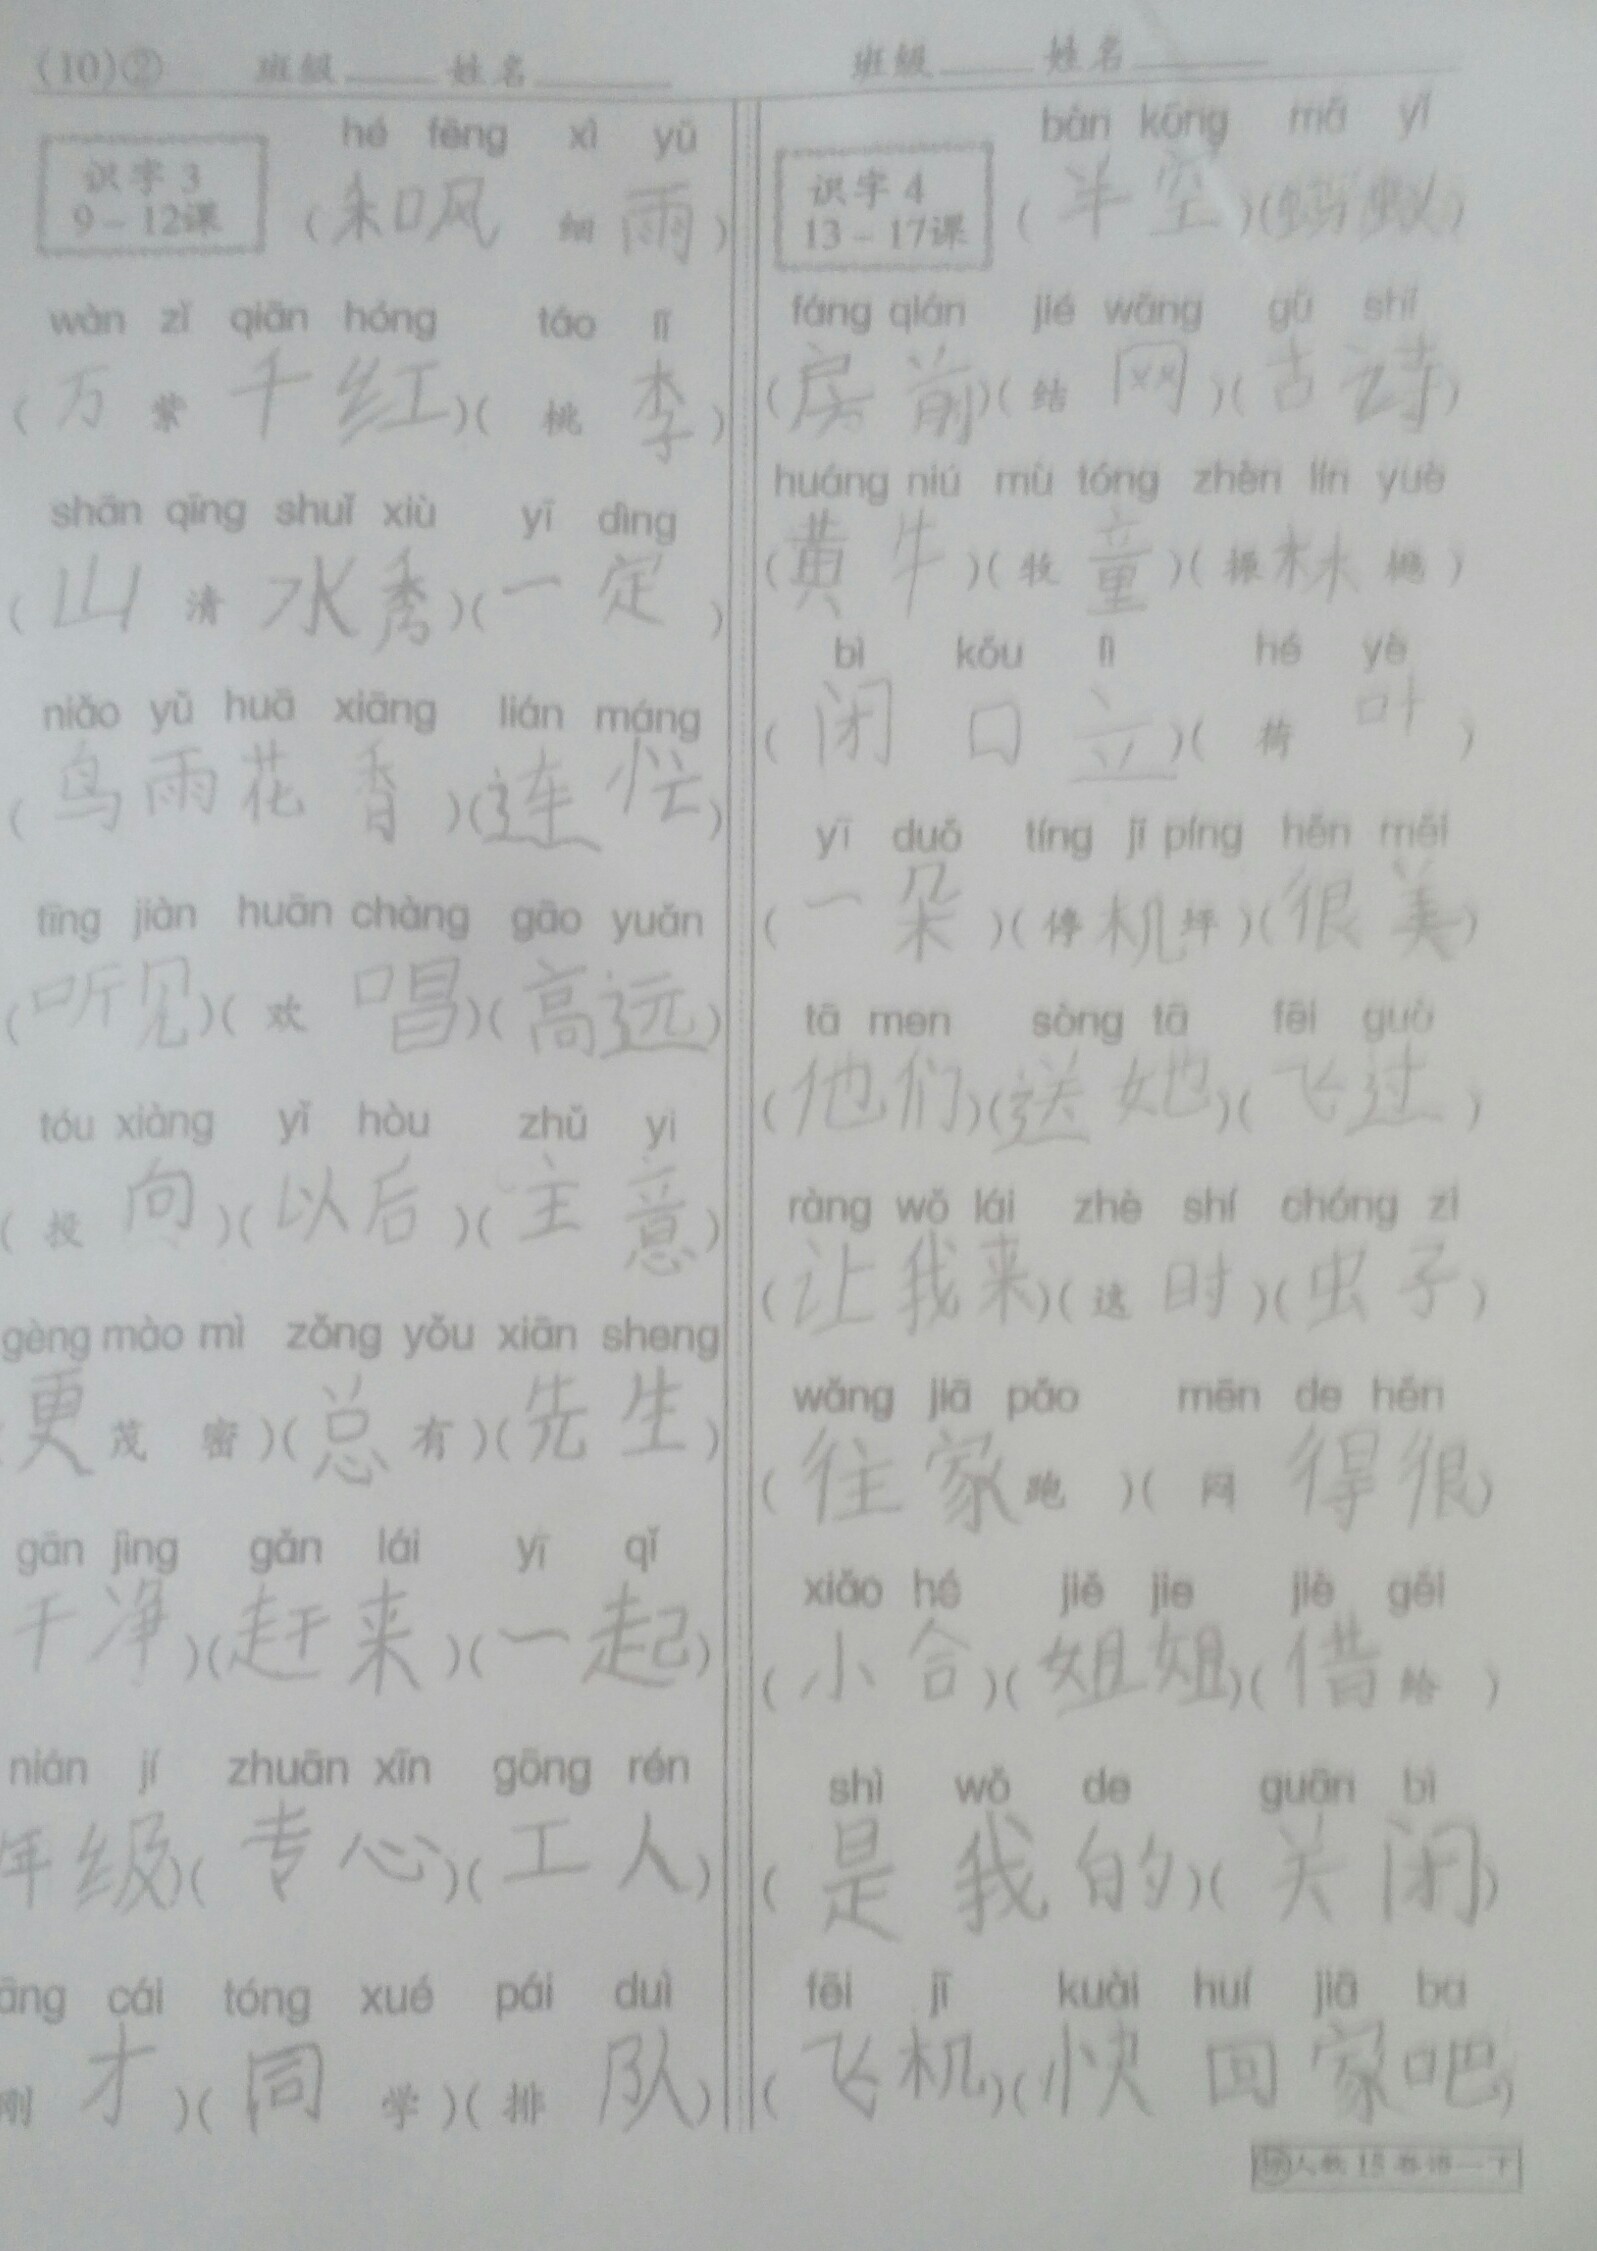 (10)② 班级____ 姓名______
识字 3
9－12课
hé fēng xì yǔ
(和风细雨)
wàn zǐ qiān hóng táo lǐ
(万紫千红)(桃李)
shān qīng shuǐ xiù yī dìng
(山清水秀)(一定)
niǎo yǔ huā xiāng lián máng
(鸟雨花香)(连忙)
tīng jiàn huān chàng gāo yuǎn
(听见)(欢唱)(高远)
tóu xiàng yǐ hòu zhǔ yi
(投向)(以后)(主意)
gèng mào mì zǒng yǒu xiān sheng
更茂密)(总有)(先生)
gān jìng gǎn lái yī qǐ
干净)(赶来)(一起)
nián jí zhuān xīn gōng rén
年级)(专心)(工人)
āng cái tóng xué pái duì
刚才)(同学)(排队)
班级____ 姓名______
识字 4
13－17课
bàn kōng mā yǐ
(半空)(蚂蚁)
fáng qián jié wǎng gǔ shī
(房前)(结网)(古诗)
huáng niú mù tóng zhèn lín yuè
(黄牛)(牧童)(振林樾)
bì kǒu lì hé yè
(闭口立)(荷叶)
yī duǒ tíng jī píng hěn měi
(一朵)(停机坪)(很美)
tā men sòng tā fēi guò
(他们)(送她)(飞过)
ràng wǒ lái zhè shí chóng zi
(让我来)(这时)(虫子)
wǎng jiā pǎo mēn de hěn
(往家跑)(闷得很)
xiǎo hé jiě jie jiè gěi
(小合)(姐姐)(借给)
shì wǒ de guān bì
(是我的)(关闭)
fēi jī kuài huí jiā ba
(飞机)(快回家吧)
人教 15 卷语一下